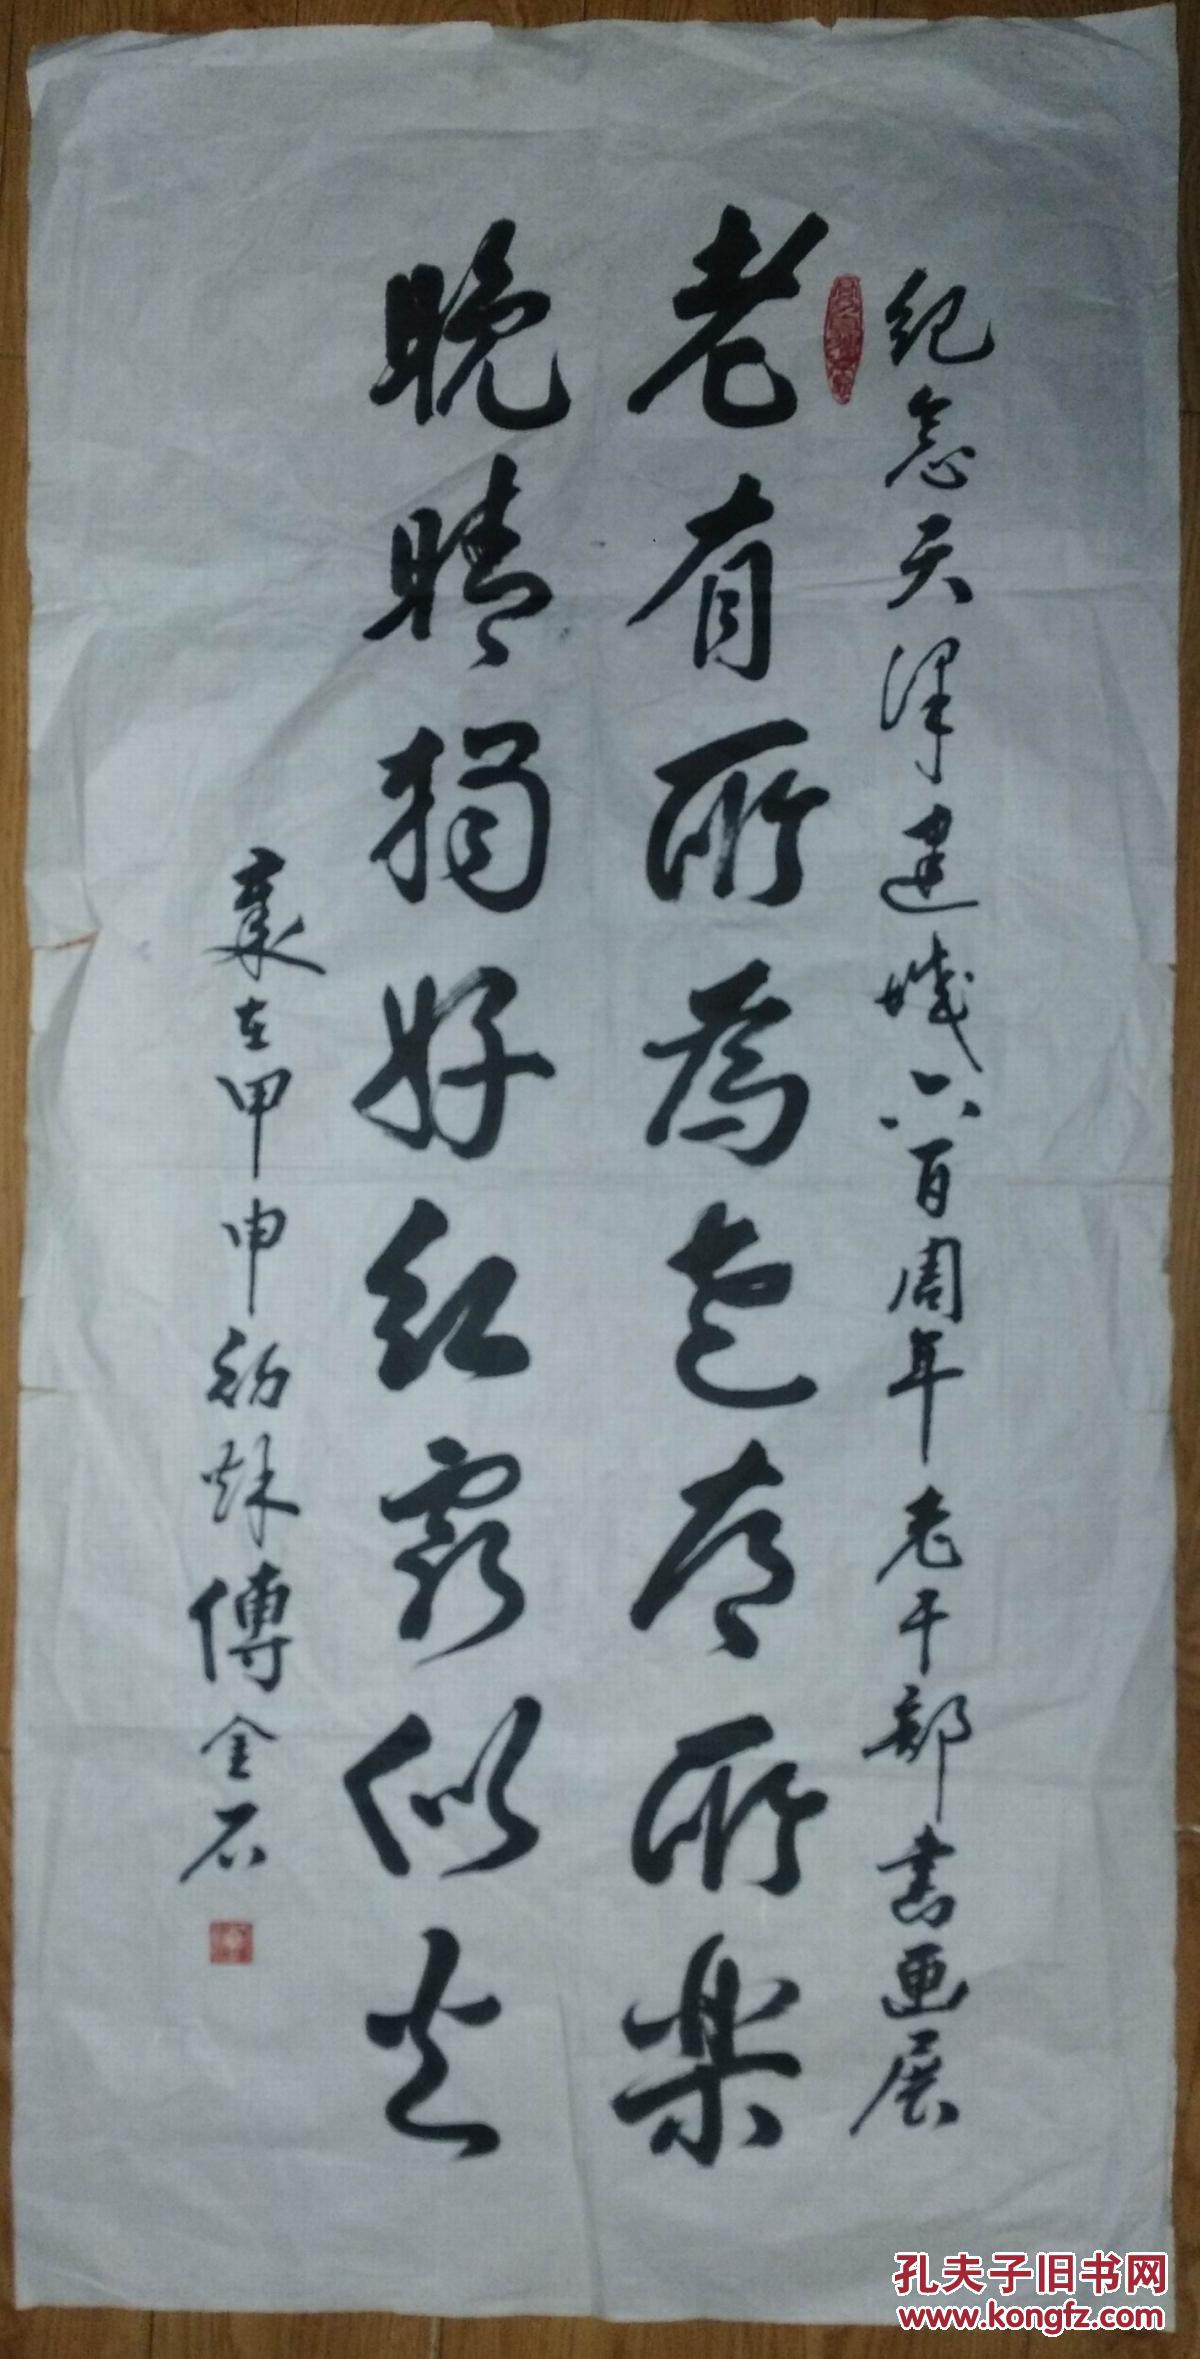 纪念天津建城六百周年老干部书画展
老有所为老有所樂
晚晴独好红霞似火
岁在甲申初秋傅金石
孔夫子旧书网
www.kongfz.com